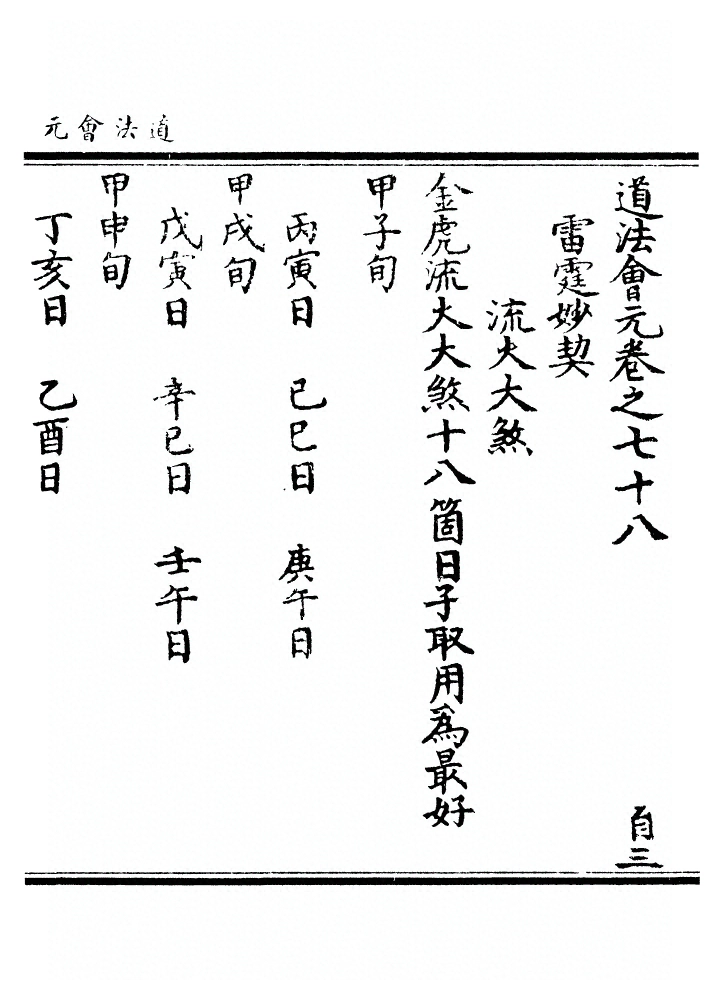 道法會元
道法會元卷之七十八 自三
雷霆妙契
流火大煞
金虎流火大煞十八箇日子取用為最好
甲子旬
丙寅日 己巳日 庚午日
甲戌旬
戊寅日 辛巳日 壬午日
甲申旬
丁亥日 乙酉日